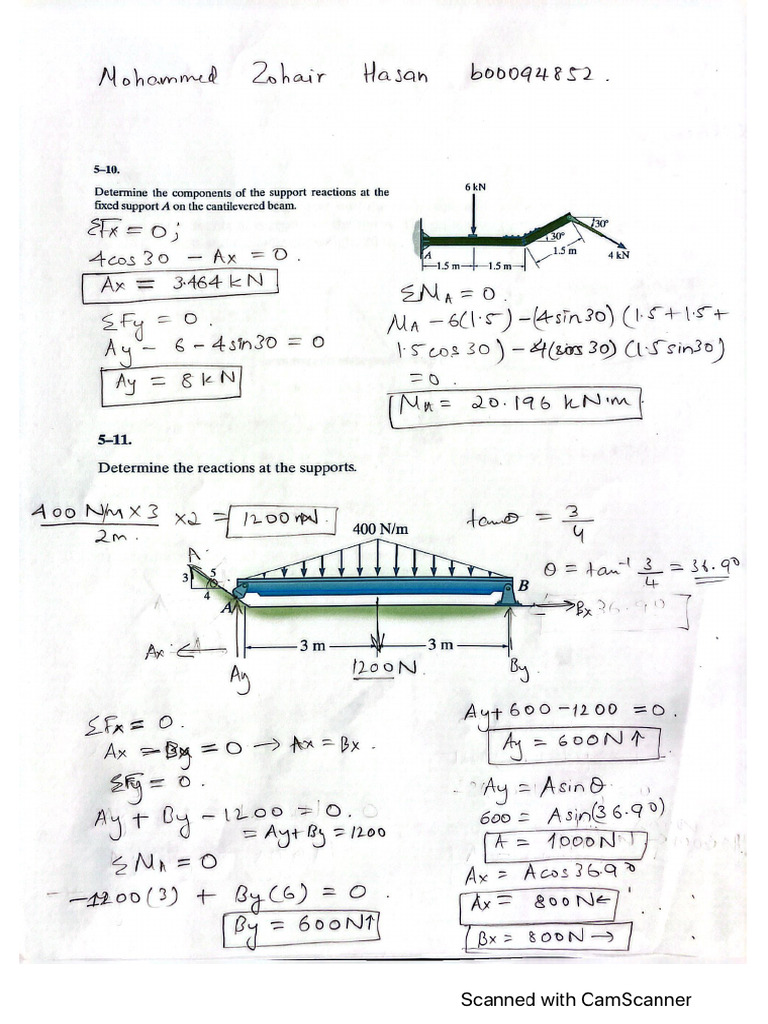 Mohammed Zohair Hasan b00094852.
5–10.
Determine the components of the support reactions at the
fixed support A on the cantilevered beam.
6 kN
30°
30°
A
1.5 m
1.5 m
1.5 m
4 kN
ΣFx = 0;
4cos30 - Ax = 0.
Ax = 3.464 kN
ΣFy = 0.
Ay - 6 - 4sin30 = 0
Ay = 8 kN
ΣMA = 0.
MA - 6(1.5) - (4sin30)(1.5+1.5+
1.5cos30) - 4(cos30)(1.5sin30)
= 0.
MA = 20.196 kN·m
5–11.
Determine the reactions at the supports.
400 N/m × 3
2m.
×2 = 1200 N.
tanθ = 3
4
θ = tan⁻¹ 3/4 = 36.90
400 N/m
A
3
5
4
A
B
Bx
36.90
Ax
Ay
3 m
3 m
1200N.
By
ΣFx = 0.
Ax - Bx = 0 → Ax = Bx.
ΣFy = 0.
Ay + By - 1200 = 0.
= Ay + By = 1200
ΣMA = 0
-1200(3) + By(6) = 0
By = 600N↑
Ay + 600 - 1200 = 0.
Ay = 600N↑
Ay = A sinθ
600 = A sin(36.90)
A = 1000N
Ax = A cos 36.90
Ax = 800N←
Bx = 800N →
Scanned with CamScanner